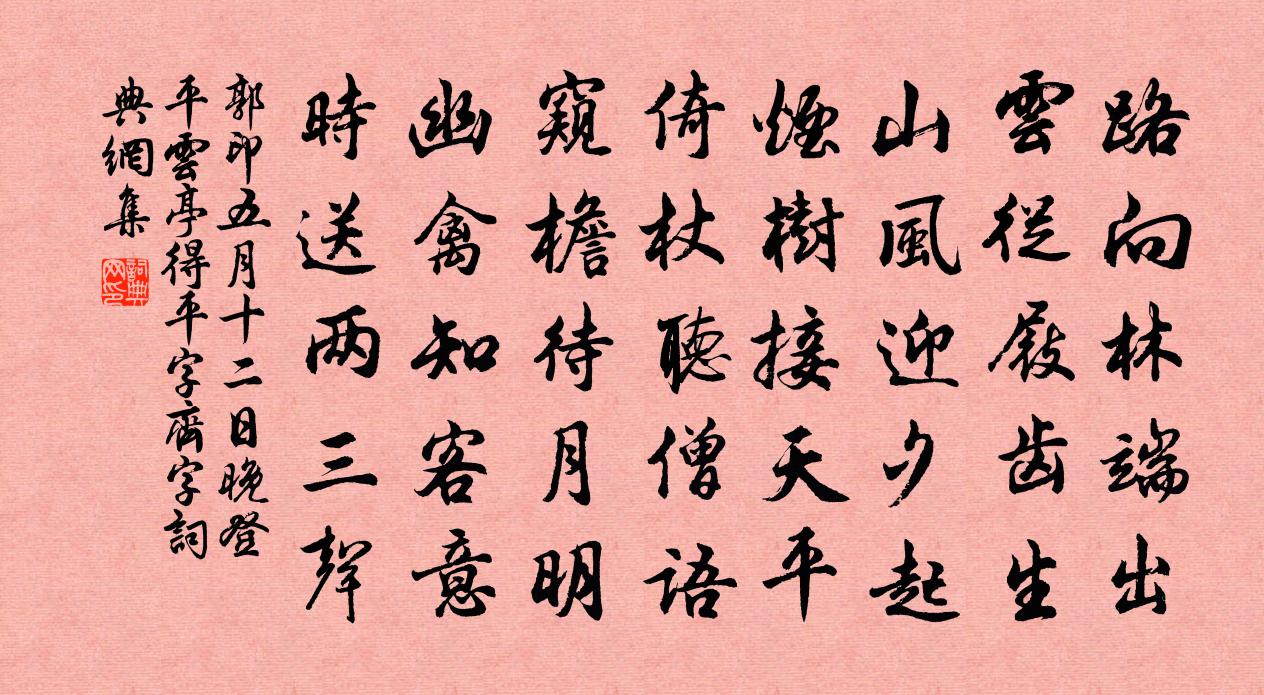 路向林端出
雲從屐齒生
山風迎夕起
煙樹接天平
倚杖聽僧語
窺檐待月明
幽禽知客意
時送两三聲
郭印五月十二日晚登
平雲亭得平字齊字詞
典網集
詞典
网印